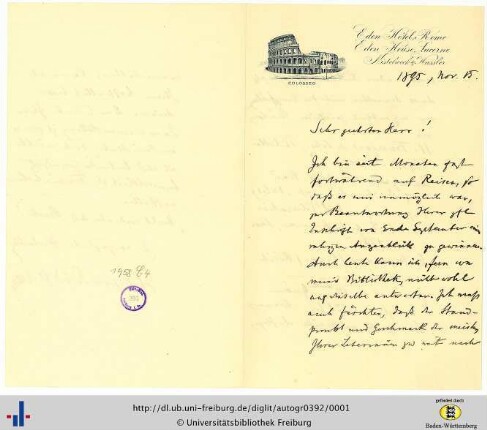 Eden Hôtel, Rome
Eden House, Lucerne
Nistelweck & Hassler
COLOSSEO
1895, Nov. 15.
Sehr geehrter Herr!
Ich bin seit Monaten fast
fortwährend auf Reisen, so
daß es mir unmöglich war,
zur Beantwortung Ihrer gfl
Zuschrift von Ende September ein
ruhigen Augenblick zu gewinnen.
Auch heute kann ich, fern von
meiner Bibliothek, nicht wohl
auf dieselbe antworten. Ich muß
auch fürchten, daß der Stand-
punkt und Geschmack der meisten
Ihrer Leserinnen zu weit
1958
http://dl.ub.uni-freiburg.de/diglit/autogr0392/0001
© Universitätsbibliothek Freiburg
gefördert durch
Baden-Württemberg